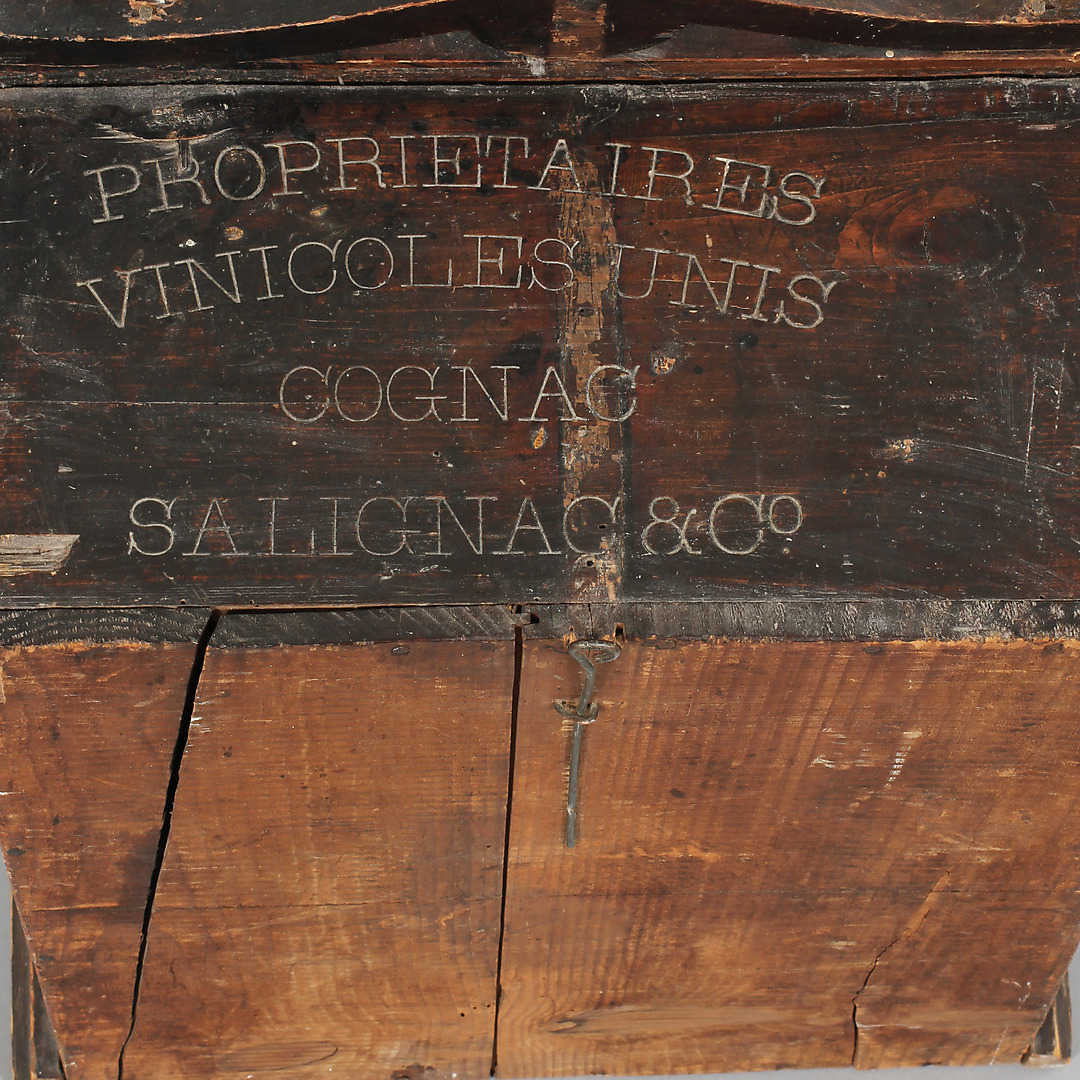 PROPRIETAIRES
VINICOLES UNIS
COGNAC
SALIGNAC & Co